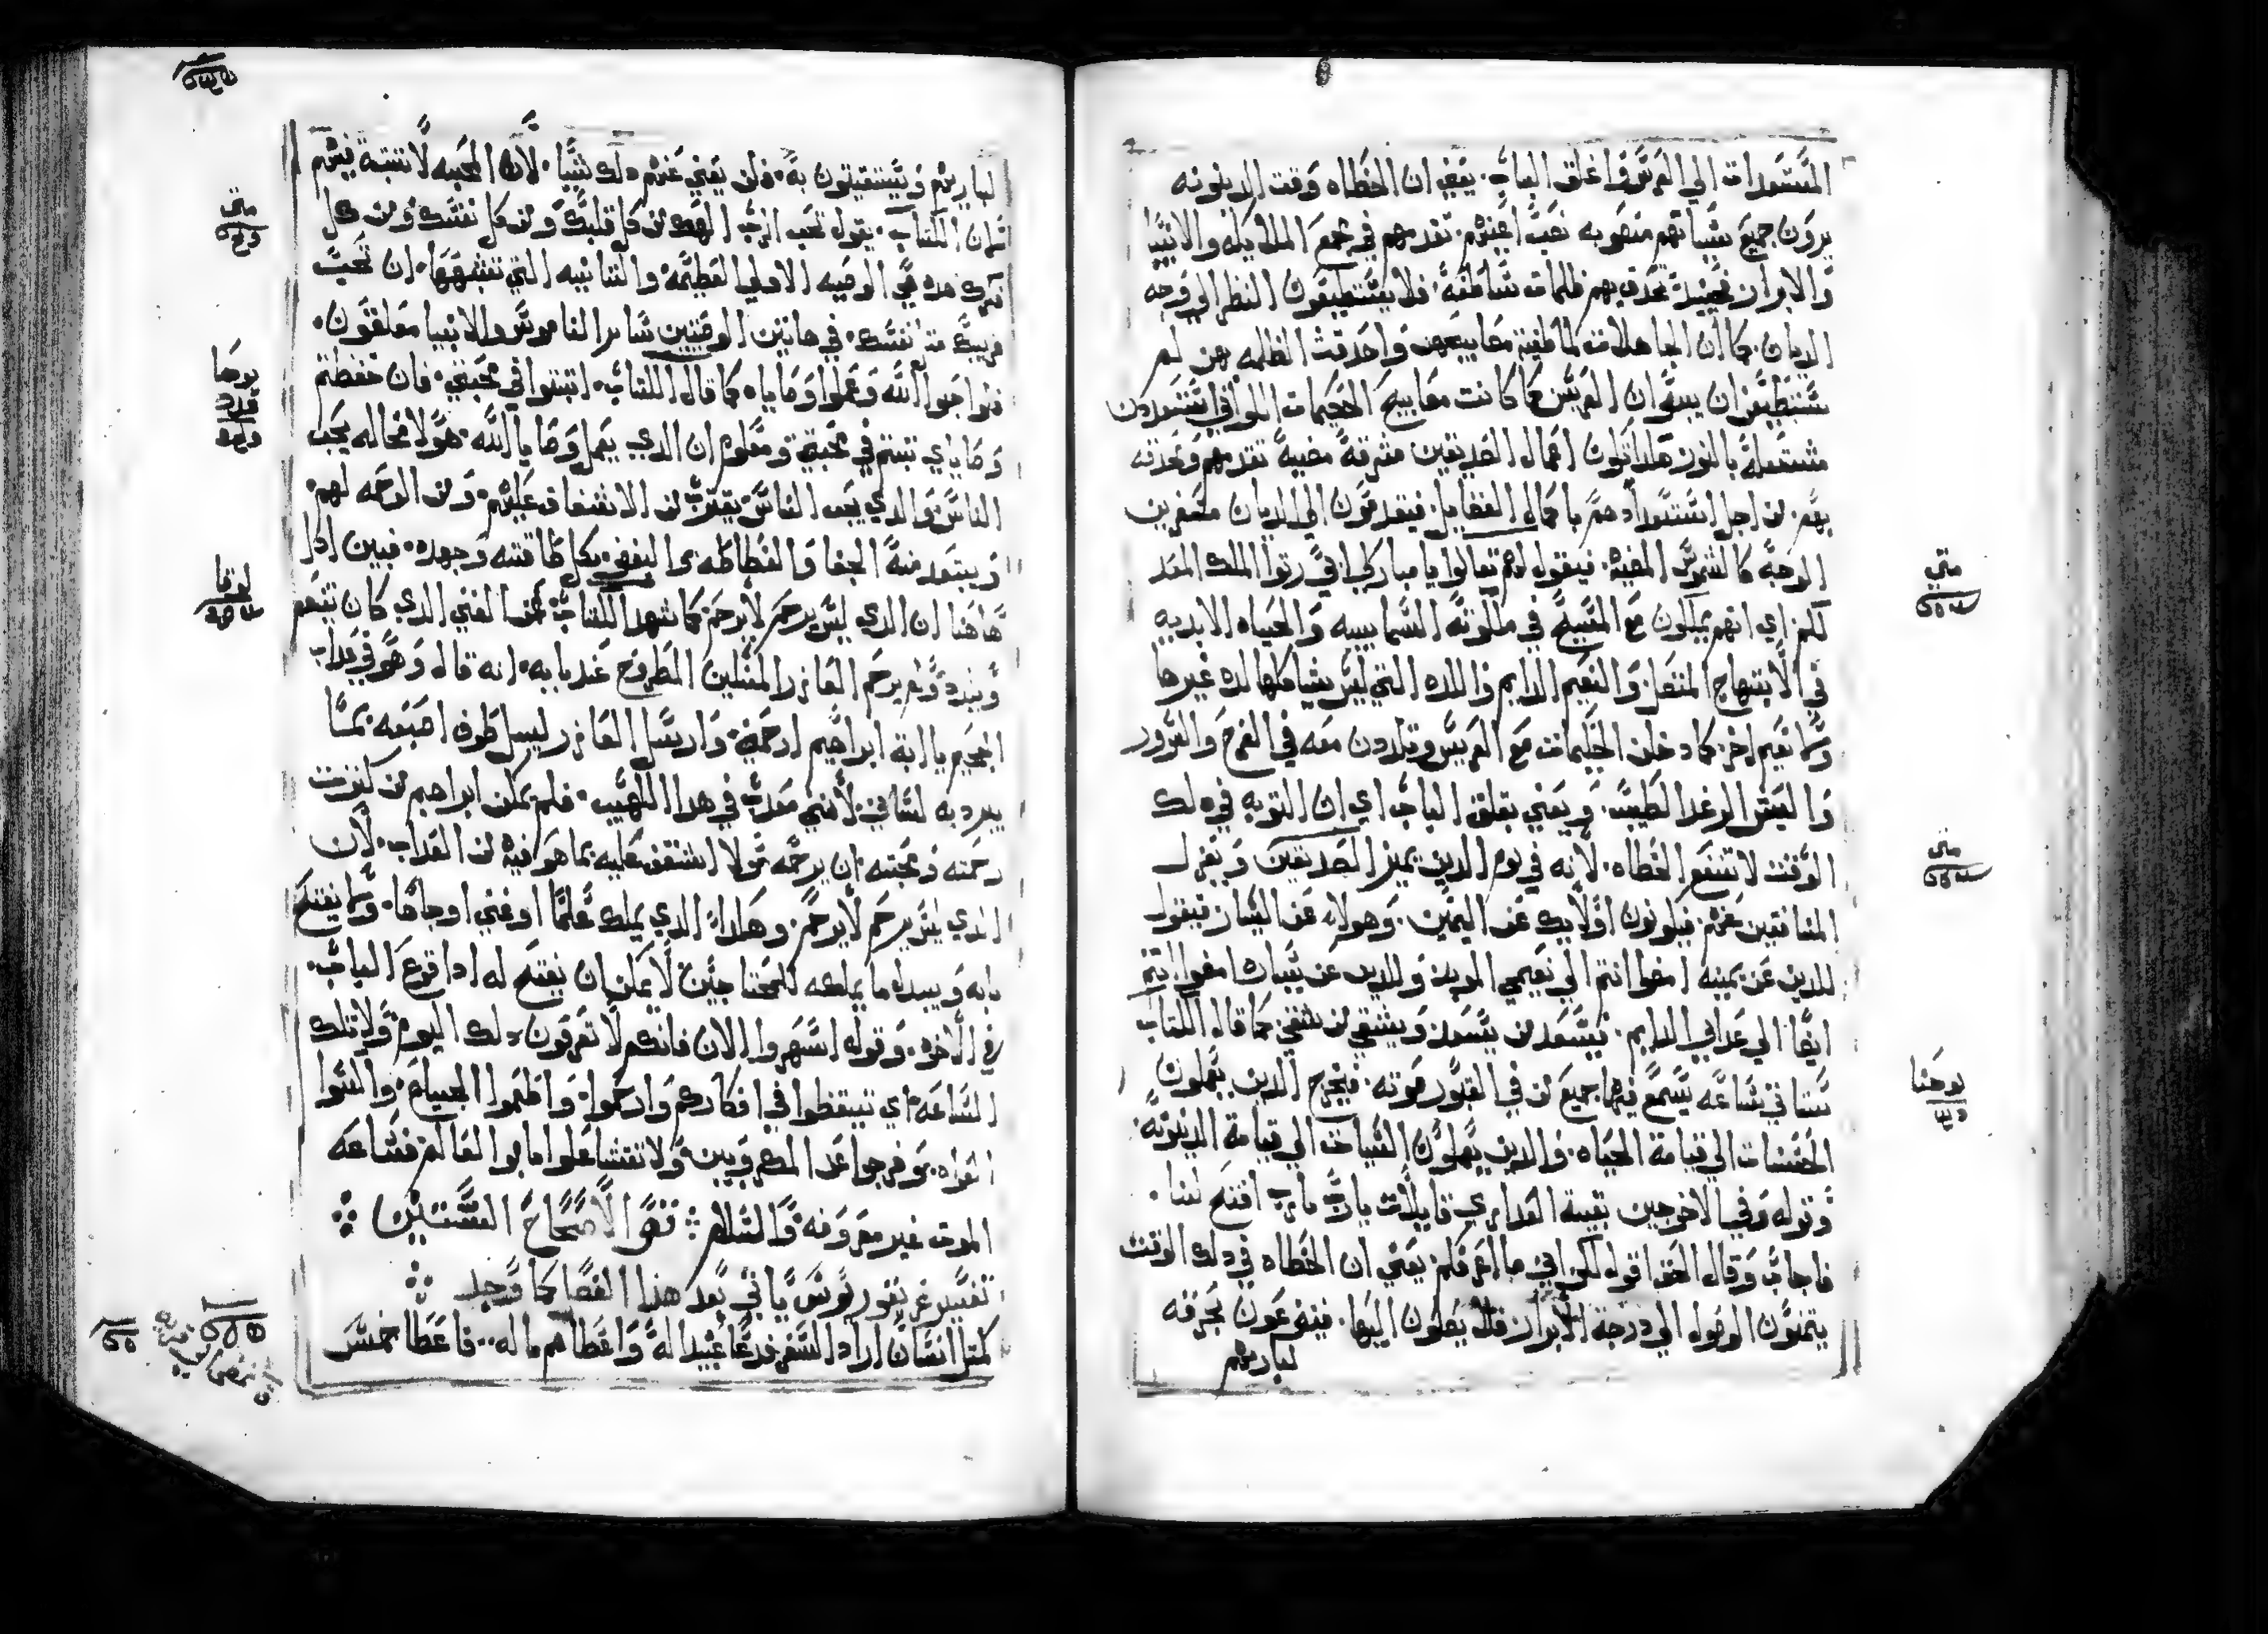 المستعدات الي العرس واغلق الباب. يعني ان الخطاه وقت الدينونه
يرون جميع سياتهم منصوبه نصب اعينهم. تقدمهم في مجمع الملايكه والانبيا
والابرار. فحينيد تحدق بهم ظلمات شاملة. فلا يستطيعون النظر الي وجه
الديان. كما ان الجاهلات لما طفية مصابيحهن واحدقت الظلمه بهن لم
يستطيعن ان يبصران العريس كما كانت مصابيح الحكيمات اللواتي استعددن
مشتعلة بالنور. هكدا تكون اعمال الصديقين مشرقة مضية تقدمهم وتحدق
بهم. من اجل استعدادهم باعمال الفضايل. فيتقدمون الي الديان مسفرين
الوجه كالشموس المضية. فيقول لهم تعالوا يا مباركي ابي رتوا الملك المعد
لكم. اي انهم يملكون مع المسيح في ملكوته السماييه والحياه الابديه
في الابتهاج المتصل والنعيم الدايم واللده التي ليس يشاكلها لده غيرها
ولا نعيم اخر. كما دخلن الحكيمات مع العريس وتلددن معه في الفرح والسرور
والعيش الرغد الطيب. ويعني بغلق الباب اي ان التوبه في دلك
الوقت لا تنفع الخطاه. لانه في يوم الدين يميز الصديقين ويعزل
المنافقين عنهم. فيكونون اوليك عن اليمين. وهولاي عن اليسار فيقول
للدين عن يمينه امضوا انتم الي نعيمي المويد وللدين عن يساره امضوا انتم
ايضا الي عدابي الدايم. فيسعد من يسعد ويشقي من يشقي كما قال الكتاب
ستاتي ساعه يسمع فيها جميع من في القبور صوته. فيخرج الدين يعملون
الحسنات الي قيامة الحياه. والدين يعملون السيات الي قيامة الدينونة.
وقوله وفي الاخر جين بقية العداري قايلات يارب يارب افتح لنا.
فاجاب وقال الحق اقول لكن اني ما اعرفكن. يعني ان الخطاه في دلك الوقت
يتمنون الوصول الي درجة الابرار فلا يصلون اليها. فيتضرعون بحرقه
لباريهم
متي
متي
يوحنا
لباريهم ويستغيتون به. فلن يغني عنهم دلك شيا. لان المحبه لا تتبتة فيهم
لان الكتاب. يقول تحب الرب الهك من كل قلبك ومن كل نفسك ومن كل
فكرك هده هي الوصيه الاولي العظيمه والتانيه التي تشبهها. ان تحب
قريبك متل نفسك. في هاتين الوصيتين ساير الناموس والانبيا معلقون.
فلو احبوا الله وعملوا وصاياه كما قال الكتاب. اتبتوا في محبتي. فان حفظتم
وصاياي تبتم في محبتي. ومعلوم ان الدي يعمل وصايا الله. هولا محاله يحب
الناس. والدي يحب الناس يقترب من الاشفاق عليهم. ومن الرحمه لهم.
ويبتعد منه الجفا والفظاظه والبغض بكل طاقته وجهده. فبين ادا
هاهنا ان الدي ليس يرحم لا يرحم كما شهد الكتاب عن الغني الدي كان يتنعم
وينده ولم يرحم العازر المسكين المطروح عند بابه. انه قال وهو في عداب
الجحيم يا ابة ابراهيم ارحمني. وارسل العازر ليبل طرف اصبعه بما
يبرد به لساني لانني معدب في هدا اللهيب. فلم يمكن ابراهيم من كترت
رحمته ومحبته ان يرحمه ولا اشفق عليه بما هو فيه من العداب. لان
الدي ليس يرحم لا يرحم. وهكدا الدي يملك علما او غني او جاها. ولا يفتح
بابه ويبدل ما يملكه للمحتاجين لا يمكن ان يفتح له ادا قرع الباب.
في الاخره. وقوله اسهروا الان فانكم لا تعرفون دلك اليوم ولا تلك
الساعه. اي تيقظوا في افكاركم وارحموا. واطعموا الجياع. والبسوا
العراه. وفرجوا عن المكروبين. ولا تتشاغلوا بامور العالم فساعه
الموت غير معروفه والسلام نص الاصحاح الستين
تفسير غريغوريوس ياتي بعد هدا الفصل كما وجد
كمتل انسان اراد السفر فدعا عبيدا له واعطاهم ماله. فاعطا خمس
متي
يوحنا
لوقا